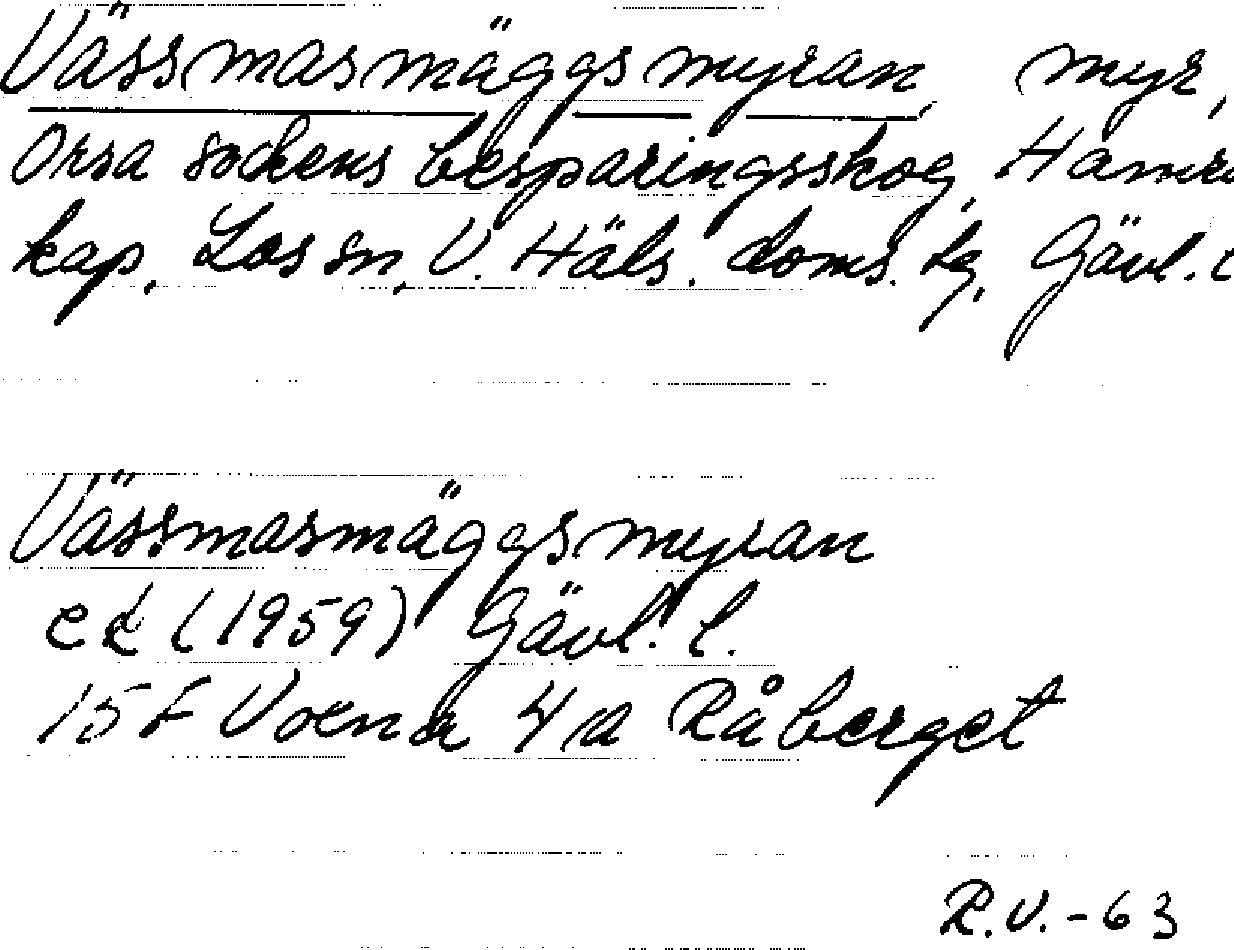 Vässmasmäggsmyran, myr,
Orsa sockens besparingsskog, Hamra
kap, Los sn, V. Häls. doms. tg, Gävl. l
Vässmasmäggsmyran
ek (1959) Gävl. l.
15F Voxna 4a Råberget
R.V.-63